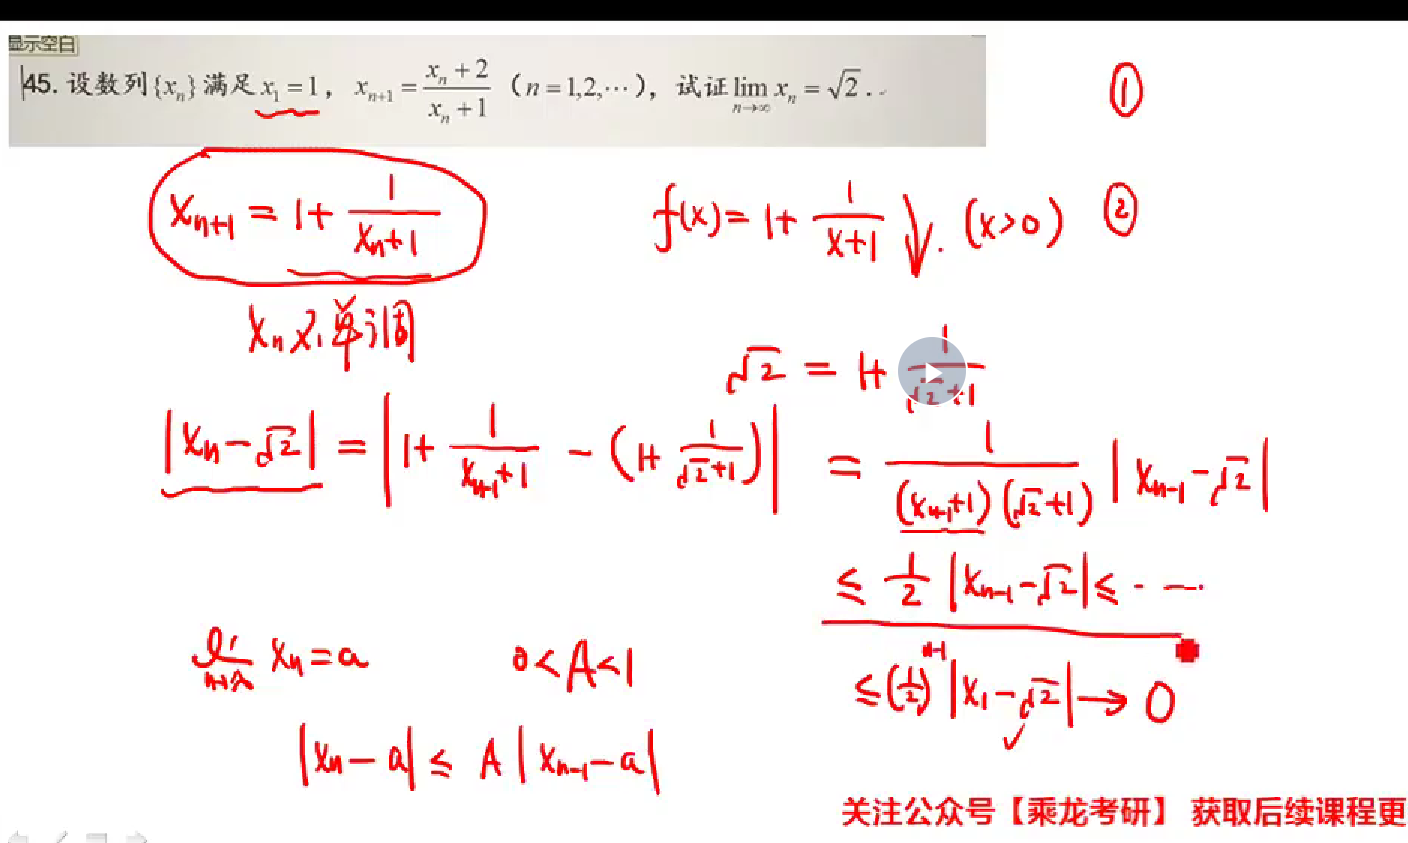 显示空白
45. 设数列{xₙ}满足 x₁=1, xₙ₊₁ = (xₙ+2)/(xₙ+1) (n=1,2,⋯), 试证 lim_{n→∞} xₙ = √2.
①
xₙ₊₁ = 1+ 1/(xₙ+1)
f(x) = 1+ 1/(x+1) ↓. (x>0) ②
xₙ 不单调
√2 = 1+ 1/(√2+1)
|xₙ-√2| = |1+ 1/(xₙ₋₁+1) - (1+ 1/(√2+1))| = 1/((xₙ₋₁+1)(√2+1)) |xₙ₋₁-√2|
≤ 1/2 |xₙ₋₁-√2| ≤ ⋯⋯
lim_{n→∞} xₙ = a 0<A<1
≤ (1/2)ⁿ⁻¹ |x₁-√2| → 0
|xₙ-a| ≤ A |xₙ₋₁-a|
关注公众号【乘龙考研】 获取后续课程更